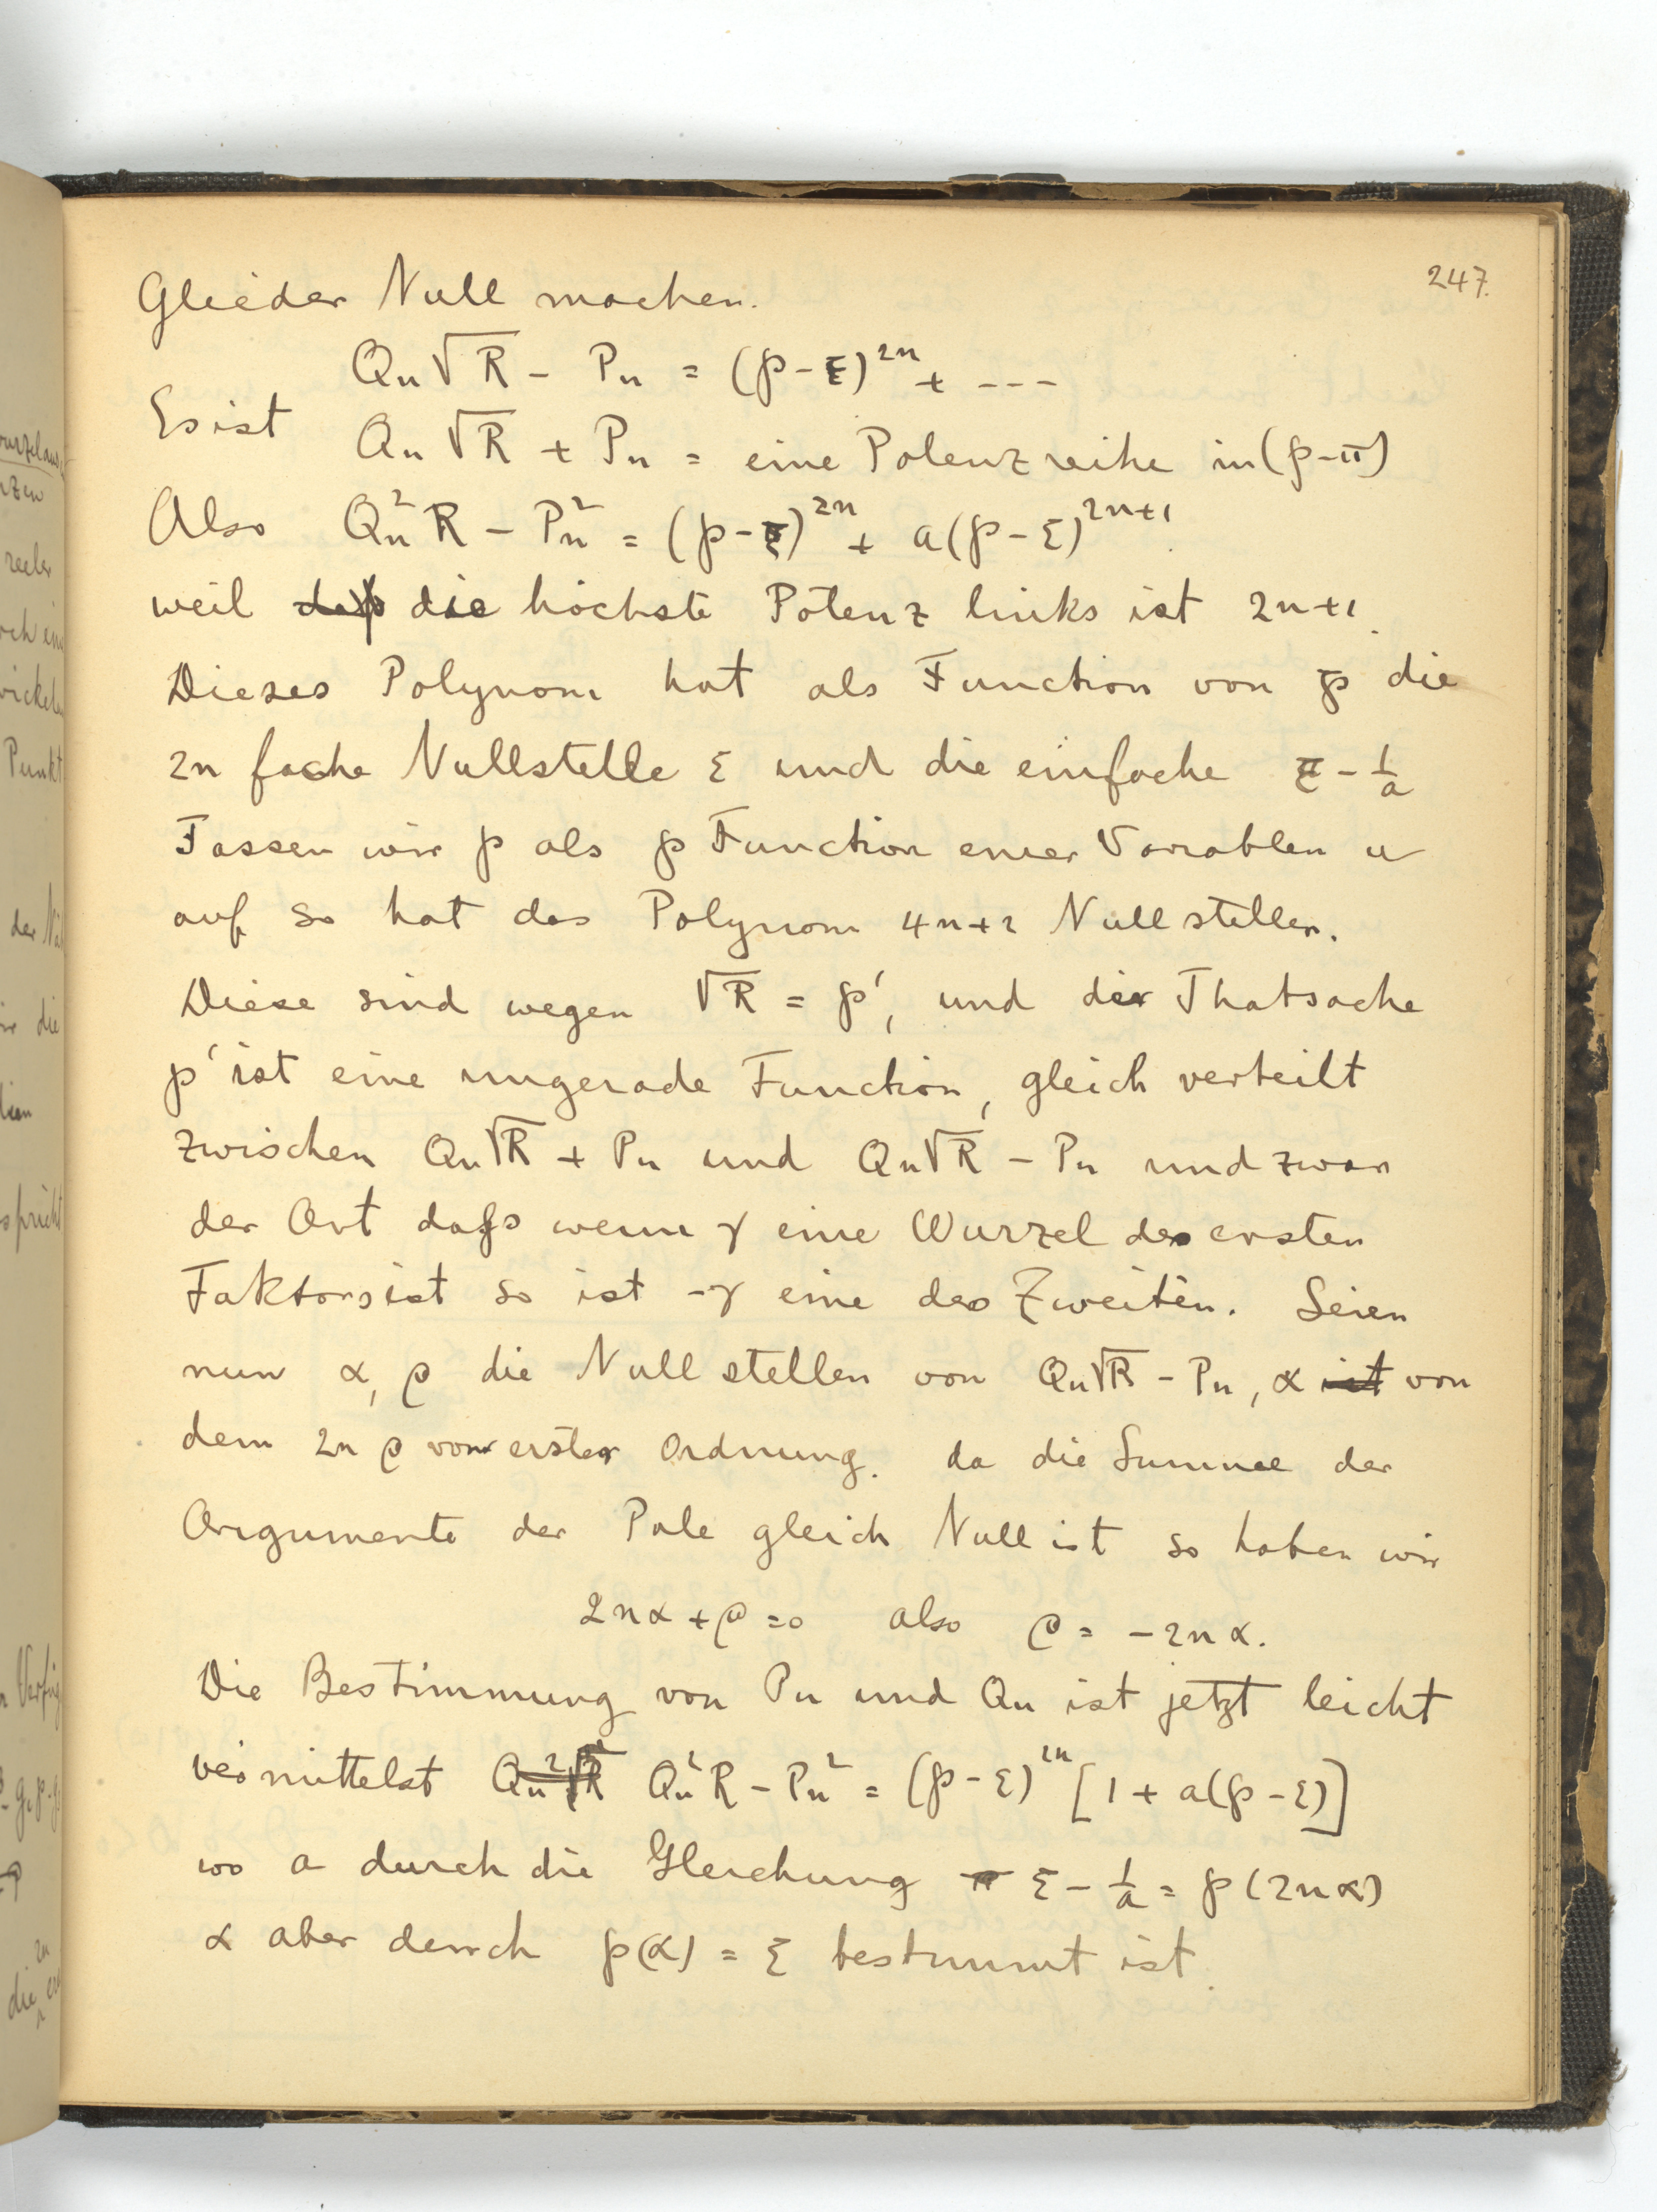 247.
Glieder Null machen.
Qn√R - Pn = (℘-ξ)²ⁿ + ---
Es ist
Qn√R + Pn = eine Potenzreihe in (℘-π)
Also Qn²R - Pn² = (℘-ξ)²ⁿ + a(℘-ξ)²ⁿ⁺¹
weil die höchste Potenz links ist 2n+1.
Dieses Polynom hat als Function von ℘ die
2n fache Nullstelle ξ und die einfache ξ - 1/a
Fassen wir ℘ als ℘ Function einer Variablen u
auf so hat das Polynom 4n+2 Nullstellen.
Diese sind wegen √R = ℘', und der Thatsache
℘' ist eine ungerade Function, gleich verteilt
zwischen Qn√R + Pn und Qn√R - Pn und zwar
der Art dafs wenn γ eine Wurzel des ersten
Faktors ist so ist -γ eine des Zweiten. Seien
nun α, β die Nullstellen von Qn√R - Pn, α ist von
dem 2n β von erster Ordnung. da die Summe der
Argumente der Pole gleich Null ist so haben wir
2nα + β = 0 also β = -2nα.
Die Bestimmung von Pn und Qn ist jetzt leicht
vermittelst Qn²√R Qn²R - Pn² = (℘-ξ)²ⁿ [1 + a(℘-ξ)]
wo a durch die Gleichung ξ - 1/a = ℘(2nα)
α aber durch ℘(α) = ξ bestimmt ist.